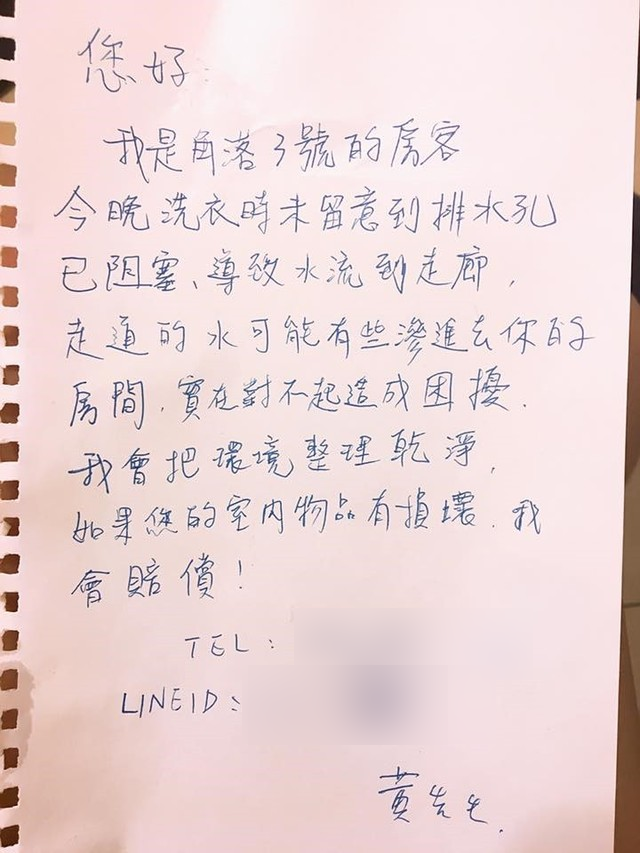 您好:
我是角落3號的房客
今晚洗衣時未留意到排水孔
已阻塞、導致水流到走廊,
走道的水可能有些滲進去你的
房間,實在對不起造成困擾.
我會把環境整理乾淨,
如果您的室內物品有損壞.我
會賠償!
TEL:
LINEID:
黃先生.